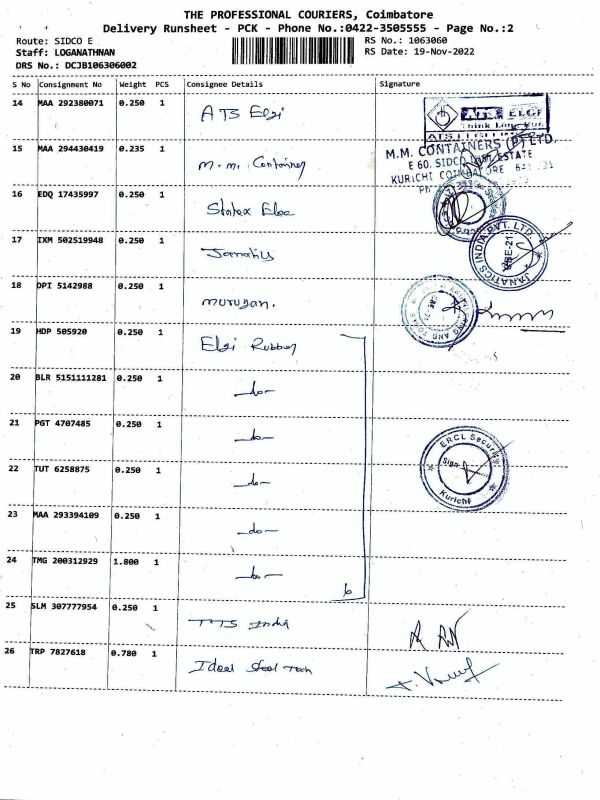 THE PROFESSIONAL COURIERS, Coimbatore
Delivery Runsheet - PCK - Phone No.:0422-3505555 - Page No.:2
Route: SIDCO E
RS No.: 1063060
Staff: LOGANATHNAN
RS Date: 19-Nov-2022
DRS No.: DCJB106306002
S No Consignment No Weight PCS Consignee Details Signature
14 MAA 292380071 0.250 1 ATS Elgi
ATS ELGI
Think Long Run.
15 MAA 294430419 0.235 1 M.M. Container
M.M. CONTAINERS (P) LTD.
E 60, SIDCO IND. ESTATE
KURICHI COIMBATORE 641 021
16 EDQ 17435997 0.250 1 Statex Elec
17 IXM 502519948 0.250 1 Janatics
JANATICS INDIA PVT. LTD.
18 DPI 5142988 0.250 1 murugan.
19 HDP 505920 0.250 1 Elgi Rubber
20 BLR 5151111281 0.250 1 -do-
21 PGT 4707485 0.250 1 -do-
22 TUT 6258875 0.250 1 -do-
ERCL Security
Sign
Kurichi
23 MAA 293394109 0.250 1 -do-
24 TMG 200312929 1.800 1 -do-
6
25 SLM 307777954 0.250 1 TTS India
26 TRP 7827618 0.780 1 Ideal Steel Tech